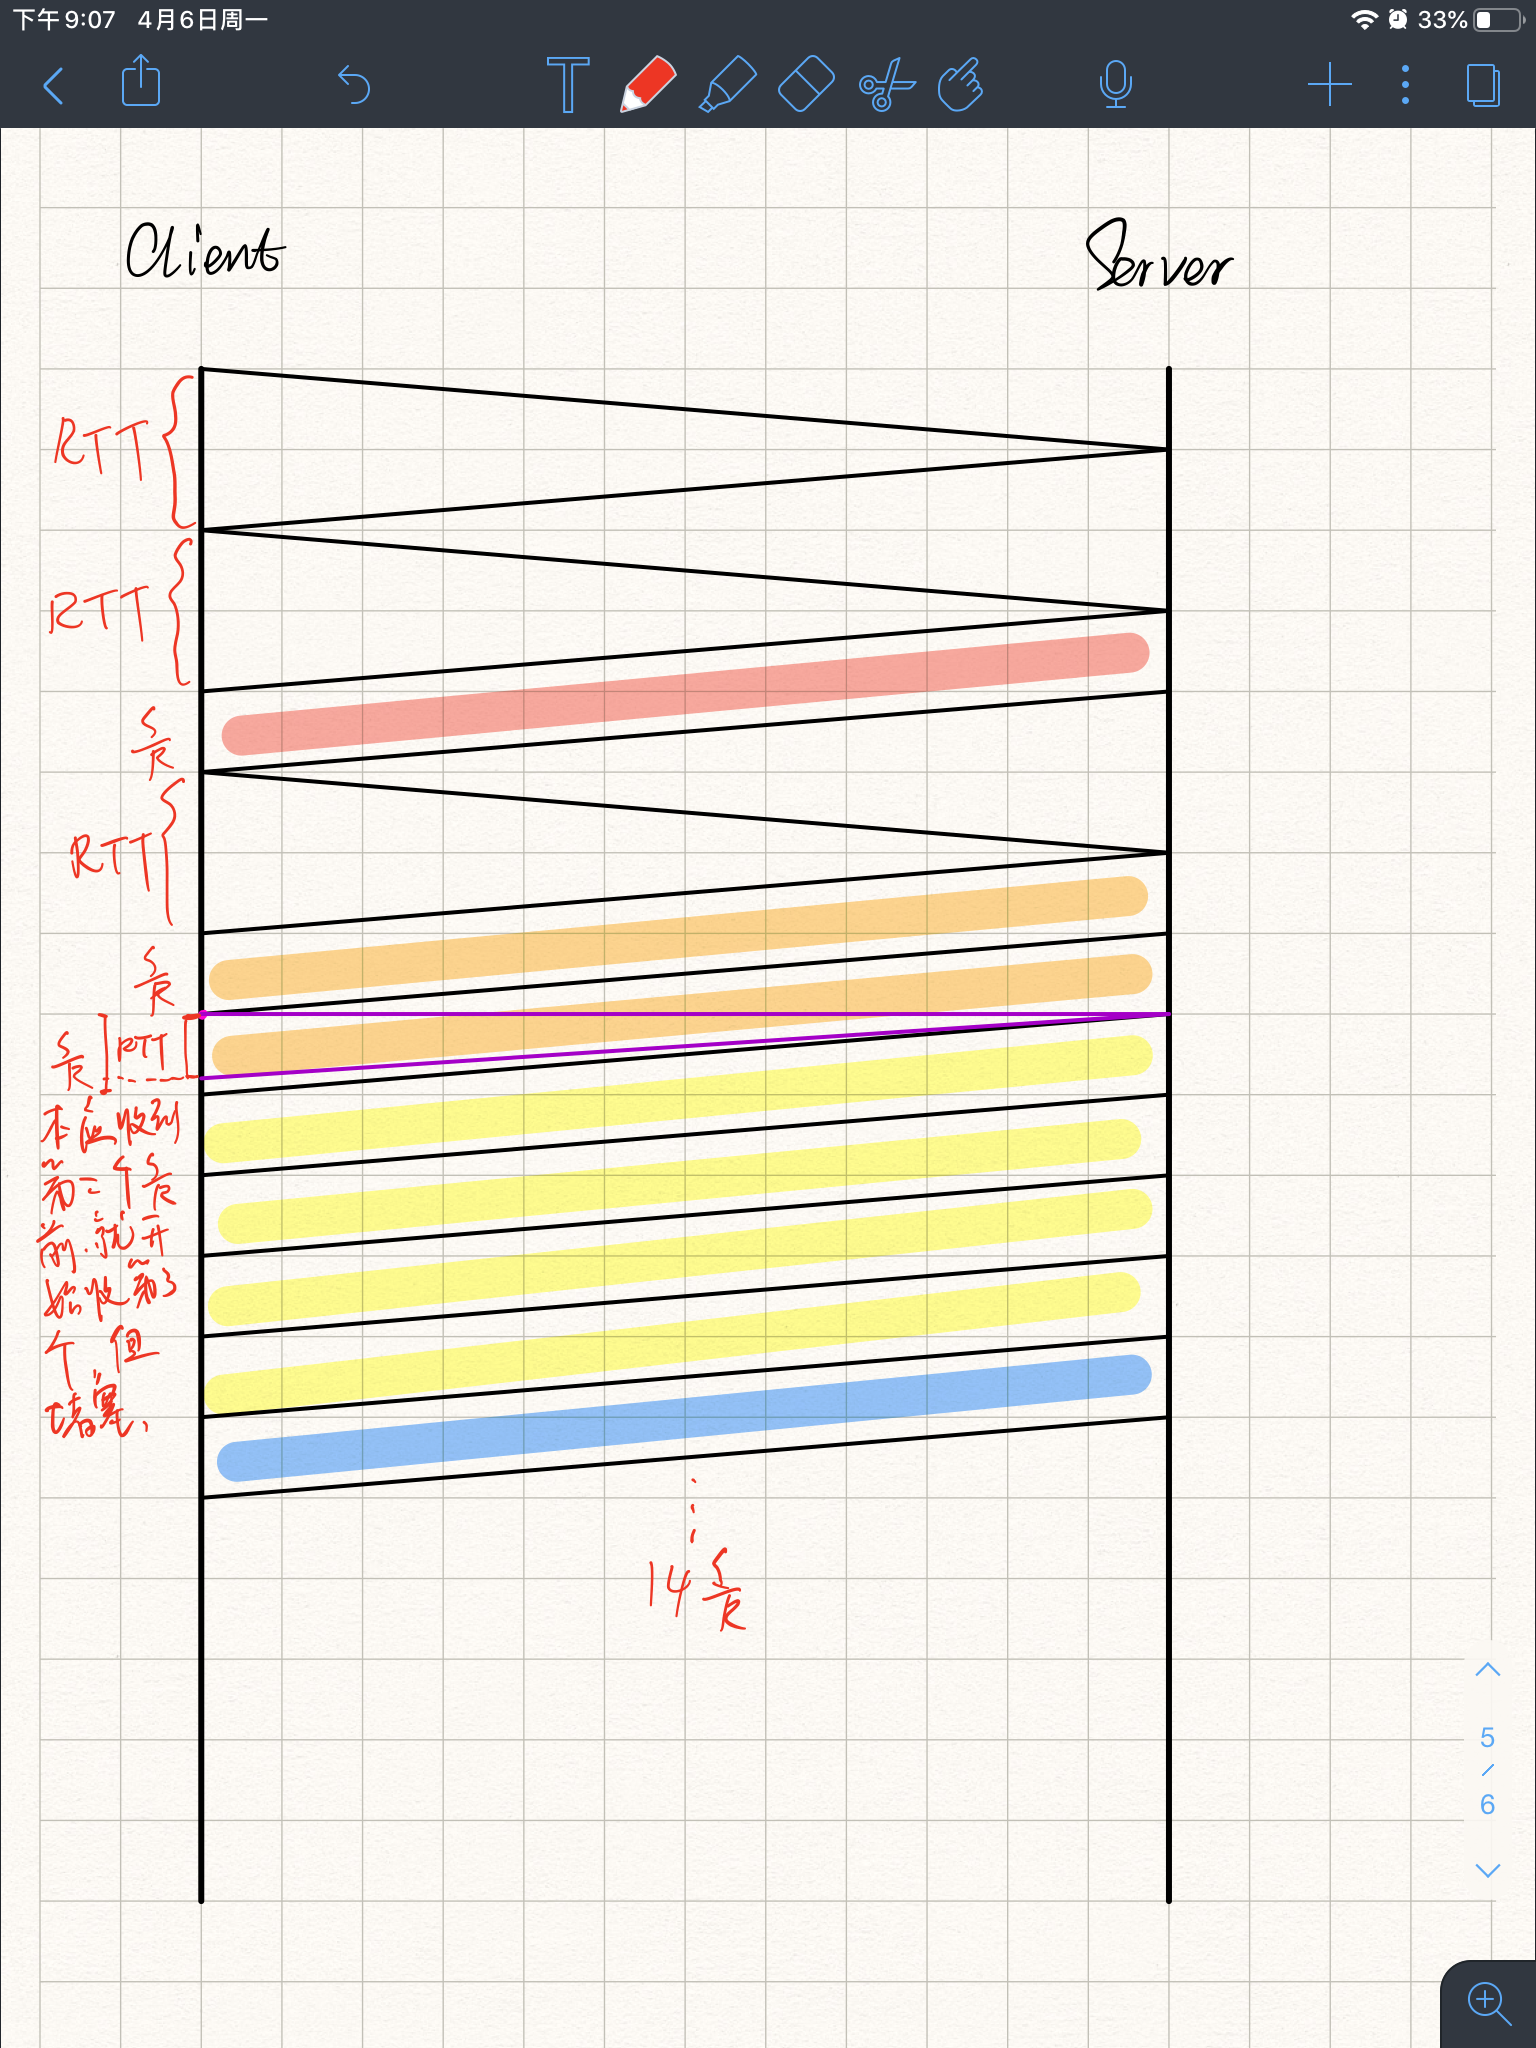 下午9:07 4月6日周一
33%
T
Client
Server
RTT
RTT
S
R
RTT
S
R
S
R
RTT
本应收到
第二个S/R
前.就开
始收第3
个,但
堵塞,
14 S/R
5
/
6